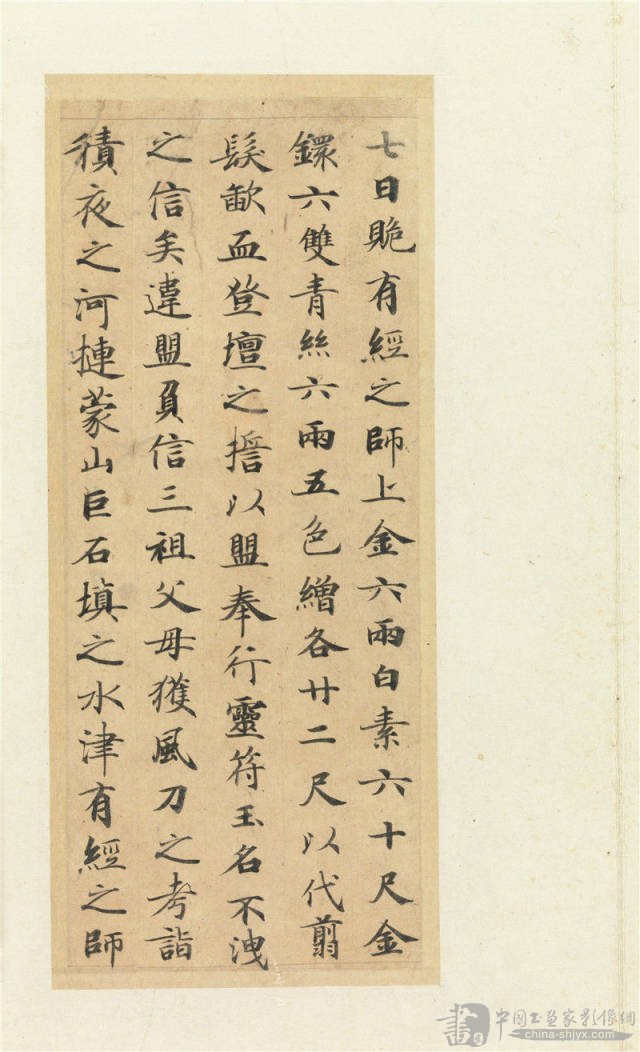 七日賝有經之師上金六兩白素六十尺金
鐶六雙青絲六兩五色繒各廿二尺以代翦
髮歃血登壇之擔以盟奉行靈符玉名不洩
之信矣違盟負信三祖父母獲風刀之考詣
積夜之河摙蒙山巨石填之水津有經之師
中國書畫家影像網
china-shjyx.com